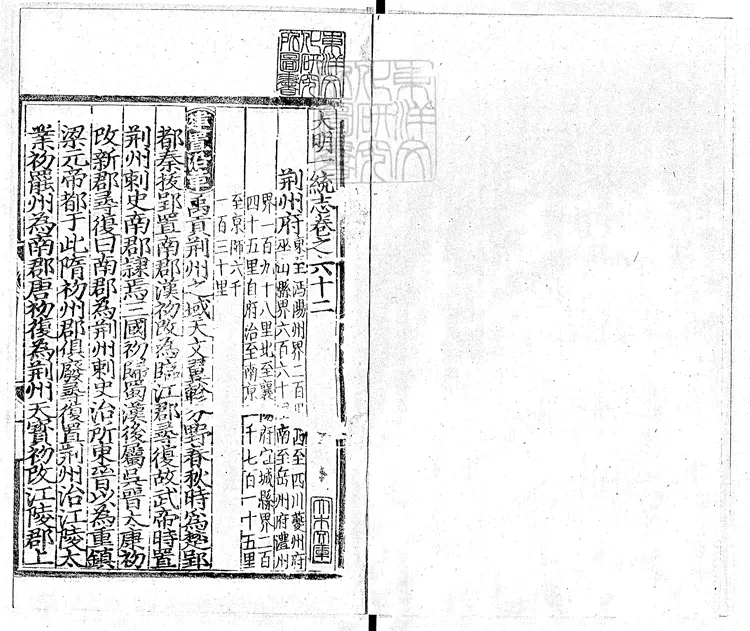 東洋文
化研究
所圖書
大明一統志卷之六十二
荆州府
東至沔陽州界二百 西至四川夔州府
巫山縣界六百六十 南至岳州府澧州
界一百九十八里北至襄陽府宜城縣界二百
四十五里自府治至南京一千七百一十五里
至京師六千
一百三十里
建置沿革 禹貢荆州之域天文翼軫分野春秋時爲楚郢
都秦拔郢置南郡漢初改為臨江郡尋復故武帝時置
荆州刺史南郡隸焉三國初歸蜀漢後屬吳晉太康初
改新郡尋復曰南郡為荆州刺史治所東晉以為重鎮
梁元帝都于此隋初州郡俱廢尋復置荆州治江陵大
業初罷州為南郡唐初復為荆州天寶初改江陵郡上
大木文庫